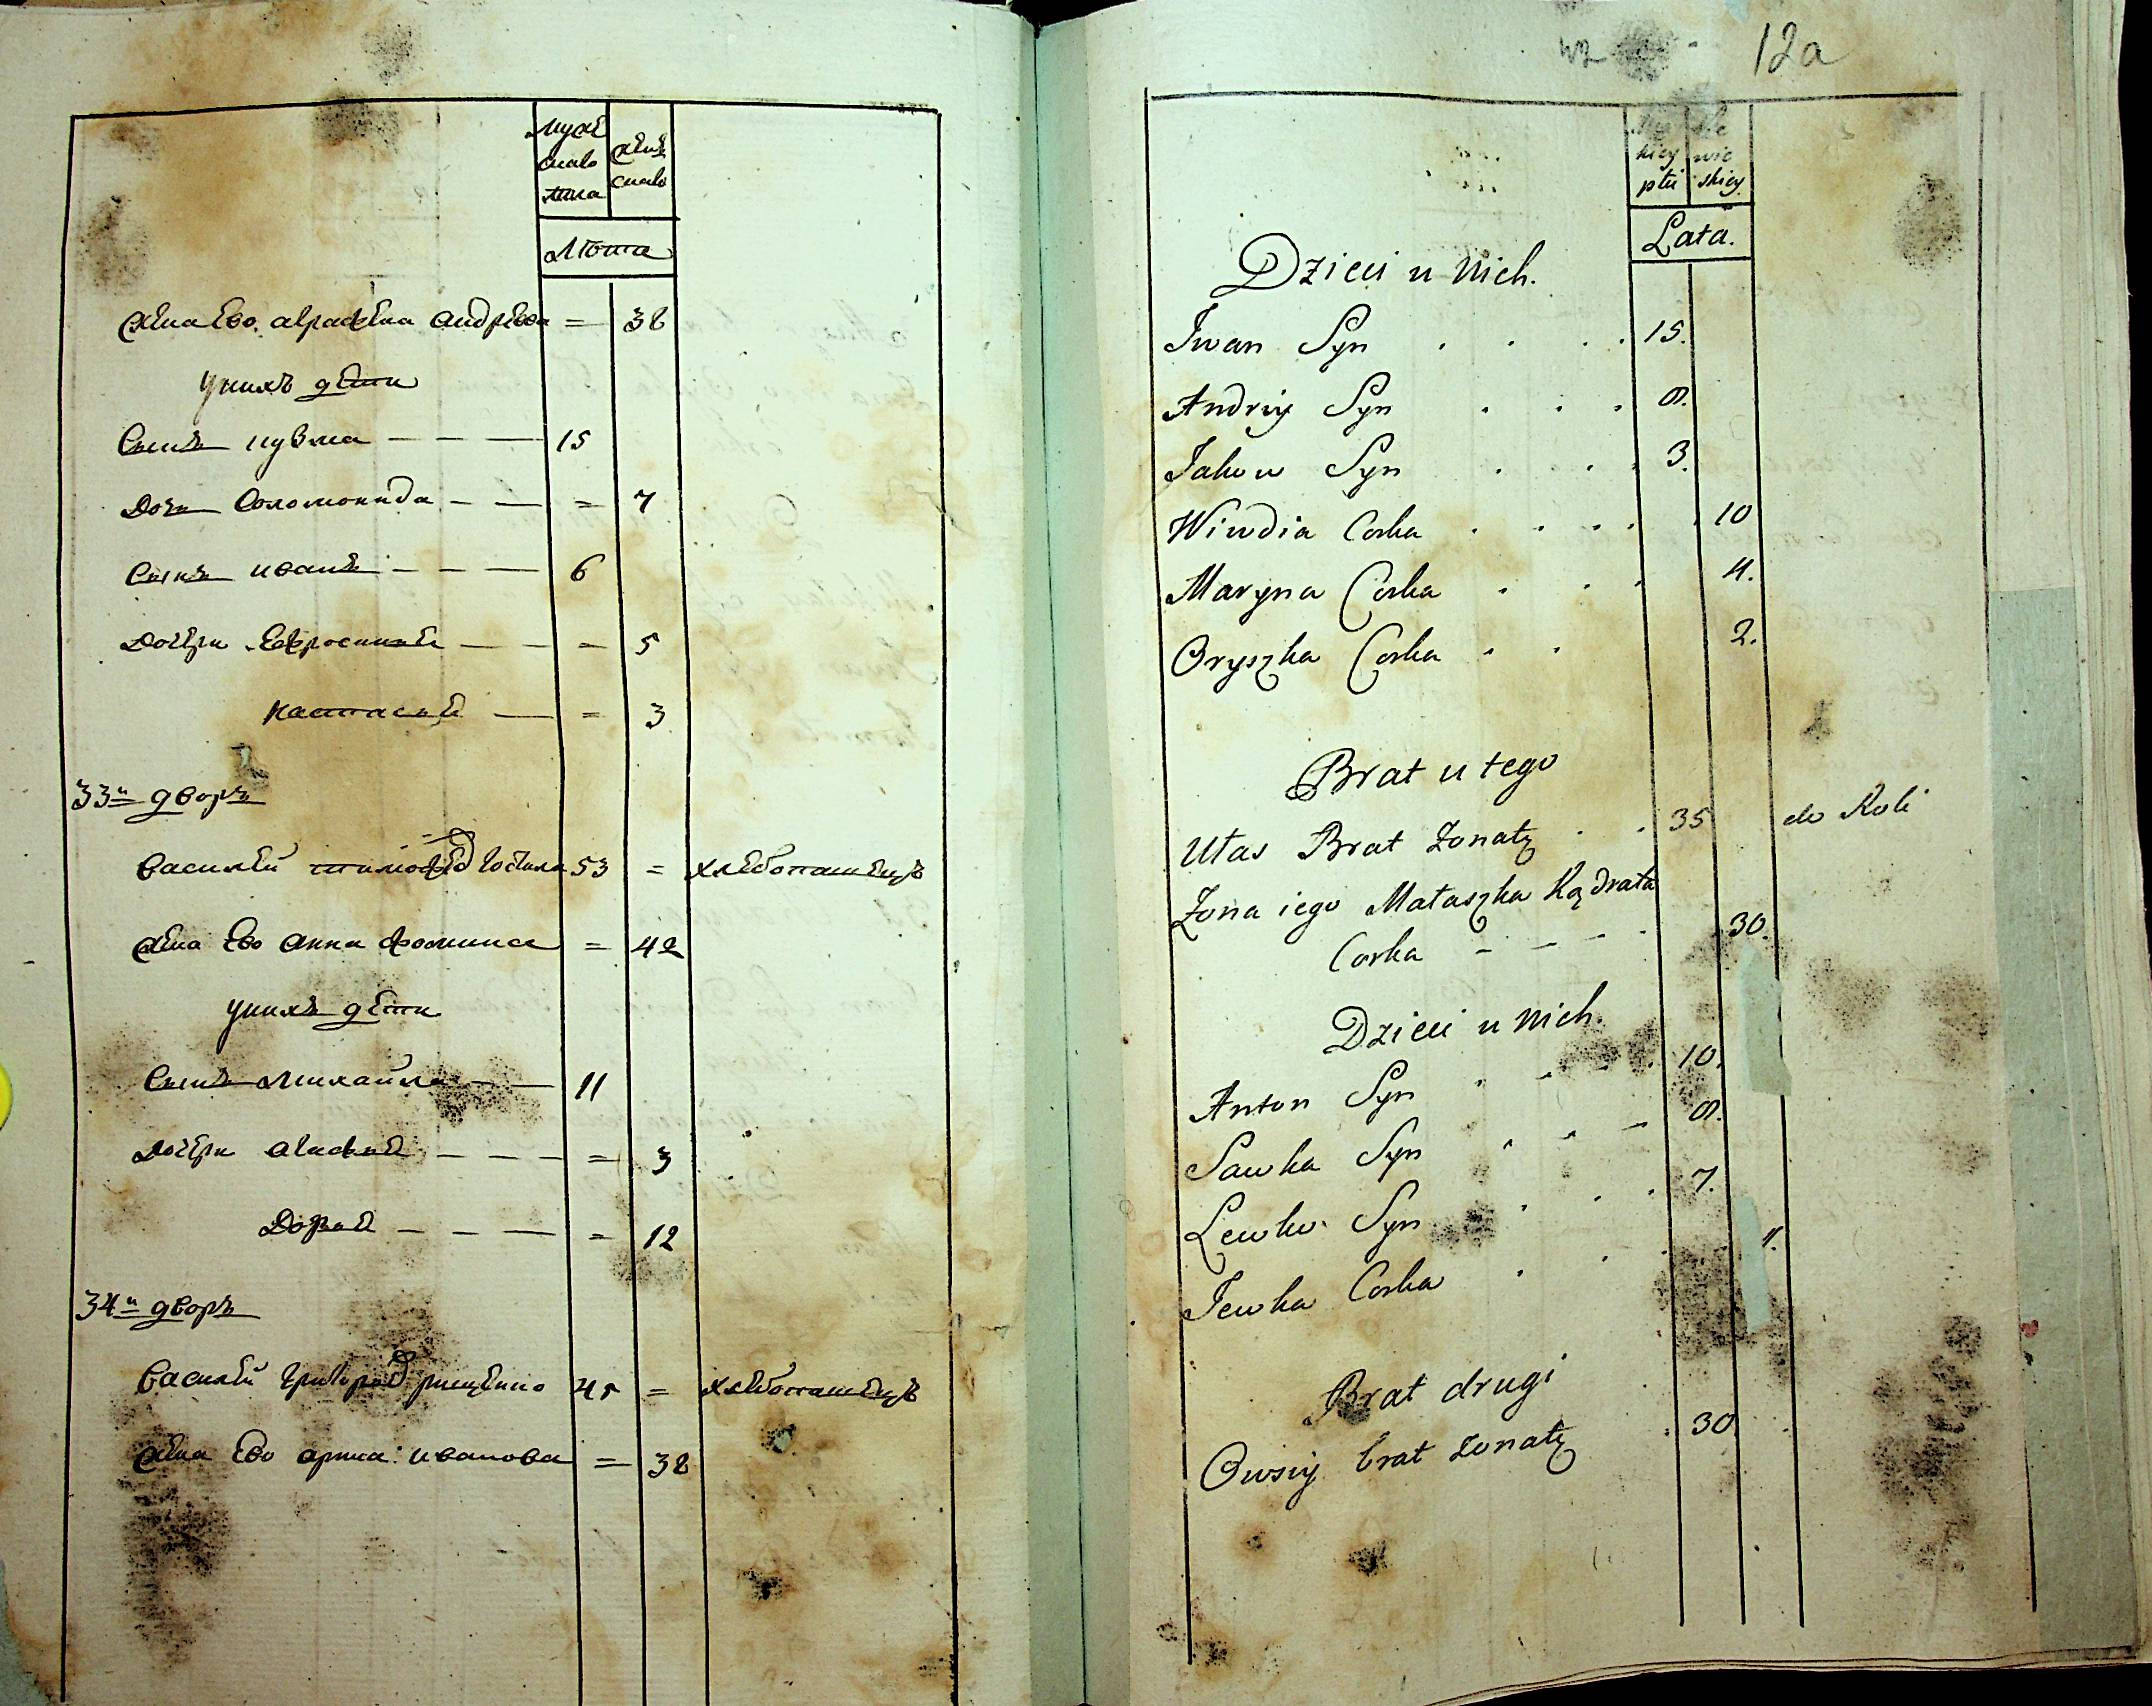 Муже
ска пола
женска
Лѣта
жена Ево Аграфена Андрѣева = 38
унихъ дети
Сынъ Кузма — — — 15
Дочь Соломонида — — = 7
Сынъ Иванъ — — — 6
Дочери Евфросиния — — = 5
Настасия — = 3
33й дворъ
Василей Тимофѣев 53 = хлебопашецъ
жена Ево Анна Фомина = 42
унихъ дети
Сынъ Михайла — — 11
Дочери Агафия — — — = 3
Дария — — — = 12
34й дворъ
Василей Григорьев 45 = хлебопашецъ
жена Ево Арина Иванова = 38
12a
kiey wie
płci skiey
Lata.
Dzieci u Nich.
Iwan Syn . . . . 15.
Andriy Syn . . . 8.
Jakow Syn . . . 3.
Wiwdia Corka . . . . 10
Maryna Corka . . . 4.
Oryszka Corka . . 2.
Brat u tego
Ułas Brat Zonaty . . 35 do Roli
Zona iego Małaszka Kądrata
Corka - - - - 30.
Dzieci u Nich.
Anton Syn 10.
Sawka Syn 8.
Lewko Syn 7.
Jewka Corka
Brat drugi
Owsiy brat zonaty . 30.